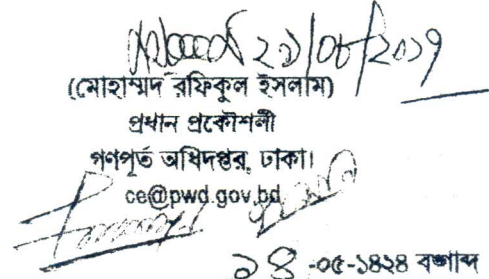 ২১/০৮/২০১৭
(মোহাম্মদ রফিকুল ইসলাম)
প্রধান প্রকৌশলী
গণপূর্ত অধিদপ্তর, ঢাকা।
ce@pwd.gov.bd
১৪-০৫-১৪২৪ বঙ্গাব্দ